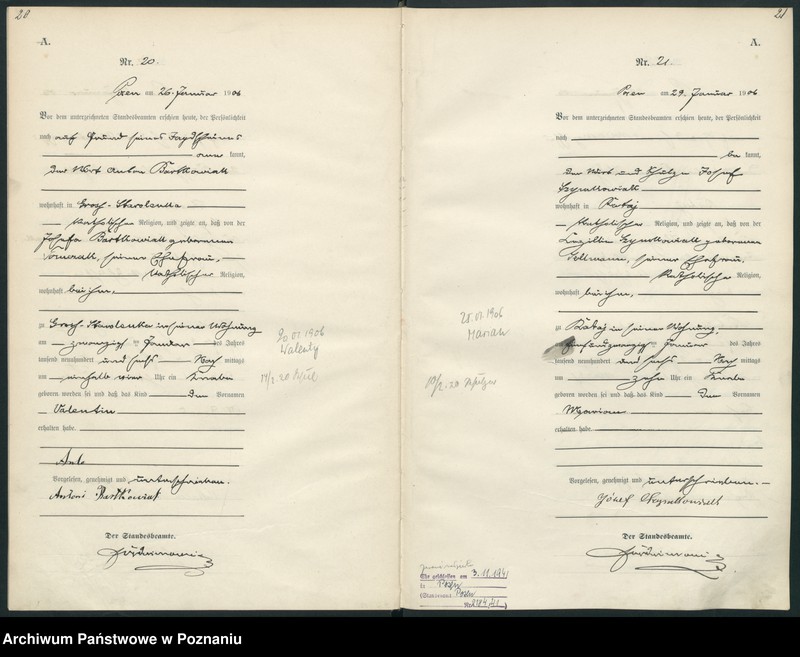 20
A.
Nr. 20.
Posen am 26. Januar 1906
Vor dem unterzeichneten Standesbeamten erschien heute, der Persönlichkeit
nach auf Grund seines Jagdscheines
kannt,
Der Wirt Anton Bartkowiak
wohnhaft in Groß-Starolenka
katholischer Religion, und zeigte an, daß von der
Josefa Bartkowiak geborenen
seiner Ehefrau,
katholischer Religion,
wohnhaft bei ihm,
zu Groß-Starolenka in seiner Wohnung
am zwanzigten Januar des Jahres
tausend neunhundert und sechs Nach mittags
um einhalb vier Uhr ein Knabe
geboren worden sei und daß das Kind den Vornamen
Valentin
erhalten habe.
Anto
Vorgelesen, genehmigt und unterschrieben.
Antoni Bartkowiak
Der Standesbeamte.
20.01.1906
Walenty
21
A.
Nr. 21.
Posen am 29. Januar 1906
Vor dem unterzeichneten Standesbeamten erschien heute, der Persönlichkeit
nach
be kannt,
Der Wirt und Schulze Josef
Szymkowiak
wohnhaft in Rataj
katholischer Religion, und zeigte an, daß von der
Cäzilie Szymkowiak geborenen
seiner Ehefrau,
katholischer Religion,
wohnhaft bei ihm,
zu Rataj in seiner Wohnung,
fünfundzwanzig Januar des Jahres
tausend neunhundert und sechs Nach mittags
um zehn Uhr ein Knabe
geboren worden sei und daß das Kind den Vornamen
Maryan
erhalten habe.
Vorgelesen, genehmigt und unterschrieben.
Józef Szymkowiak
Der Standesbeamte.
25.01.1906
Marian
Ehe geschlossen am 3.11.1941
in Posen
(Standesamt Posen
Nr. 2184/41)
Archiwum Państwowe w Poznaniu